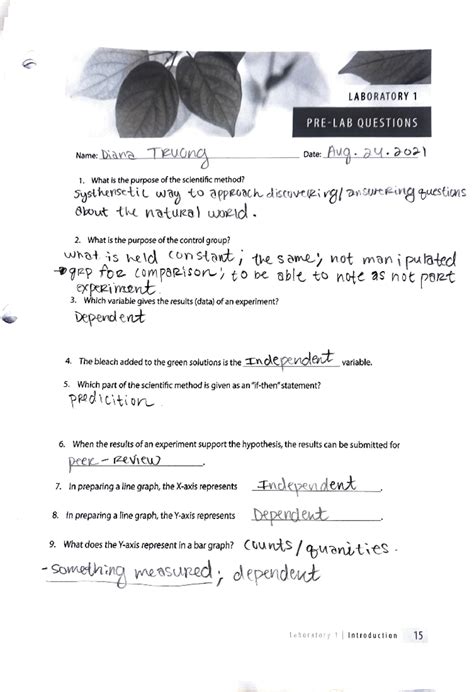 LABORATORY 1
PRE-LAB QUESTIONS
Name: Diana Truong Date: Aug. 24. 2021
1. What is the purpose of the scientific method?
systhensetic way to approach discovering/answering questions
about the natural world.
2. What is the purpose of the control group?
what is held constant; the same; not manipulated
grp for comparison; to be able to note as not part
experiment
3. Which variable gives the results (data) of an experiment?
Dependent
4. The bleach added to the green solutions is the Independent variable.
5. Which part of the scientific method is given as an "if-then" statement?
predicition
6. When the results of an experiment support the hypothesis, the results can be submitted for
peer - review.
7. In preparing a line graph, the X-axis represents Independent.
8. In preparing a line graph, the Y-axis represents Dependent.
9. What does the Y-axis represent in a bar graph? counts/quanities.
- something measured; dependent
Laboratory 1 | Introduction 15